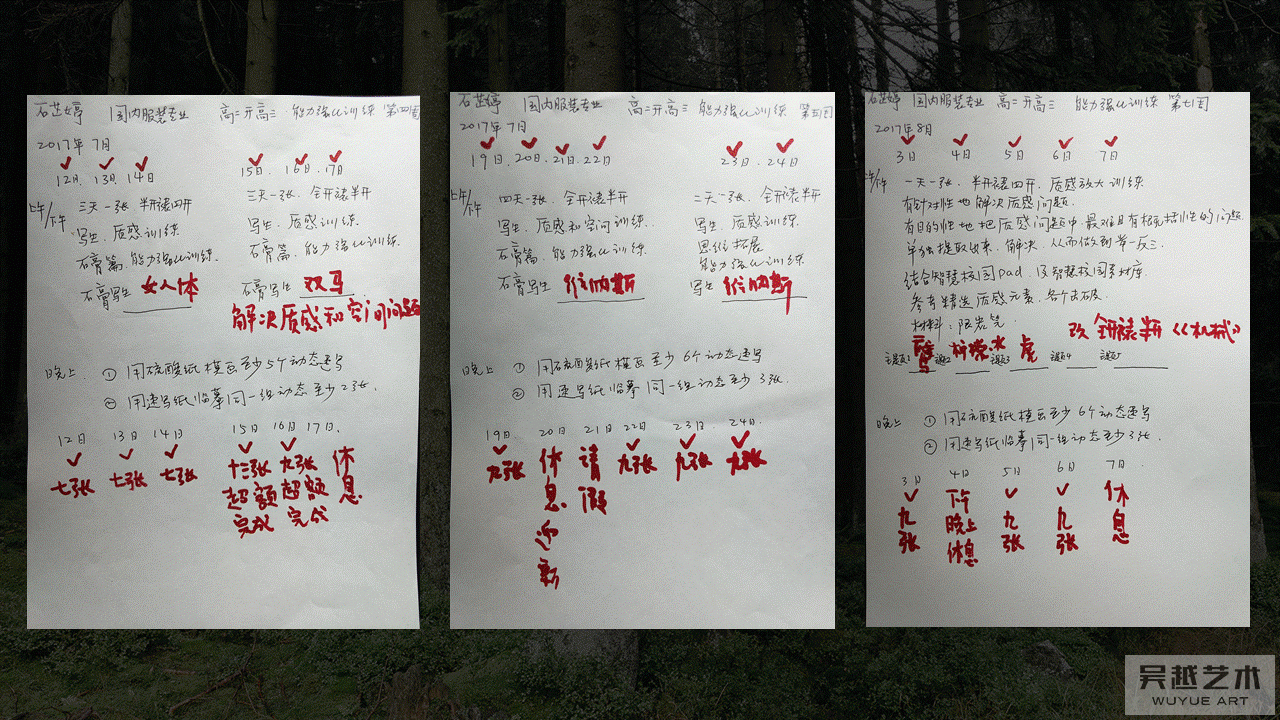 石芷婷 国内服装专业 高二升高三 能力强化训练 第四周
2017年7月
12日. 13日. 14日
15日. 16日. 17日
上午/下午
三天一张 半开裱四开
写生. 质感训练.
石膏篇. 能力强化训练.
石膏写生 女人体
三天一张. 全开裱半开
写生. 质感训练.
石膏篇. 能力强化训练.
石膏写生 双马
解决质感和空间问题
晚上. ① 用硫酸纸模画至少5个动态速写
② 用速写纸临摹同一组动态至少2张.
12日 13日 14日 15日 16日 17日.
七张 七张 七张 十三张 九张 休息
超额完成 超额完成
石芷婷 国内服装专业 高二升高三 能力强化训练 第五周
2017年7月
19日. 20日. 21日. 22日
23日. 24日.
上午/下午
四天一张. 全开裱半开
写生. 质感和空间训练.
石膏篇. 能力强化训练.
石膏写生 维纳斯
二天一张. 全开裱半开
写生. 质感训练.
思维拓展
能力强化训练
写生 维纳斯
晚上 ① 用硫酸纸模画至少6个动态速写
② 用速写纸临摹同一组动态至少3张.
19日. 20日 21日 22日 23日 24日.
九张 休息迎新 请假 九张 九张 九张
石芷婷 国内服装专业 高二升高三 能力强化训练 第七周
2017年8月
3日 4日 5日 6日 7日
上午/下午
一天一张. 半开裱四开. 质感放大训练
有针对性地解决质感问题.
有目的性地把质感问题中最难且有概括性的问题
单独提取出来. 解决. 从而做到举一反三.
结合智慧校园Pad. 及智慧校园素材库.
参考精选质感元素. 各个击破.
材料: 限炭笔
改 全开裱半开《机械》
主题1 主题2 主题3 虎 主题4 主题5
晚上 ① 用硫酸纸模画至少6个动态速写
② 用速写纸临摹同一组动态至少3张.
3日 4日 5日 6日 7日
九张 下午晚上休息 九张 九张 休息
吴越艺术
WUYUE ART